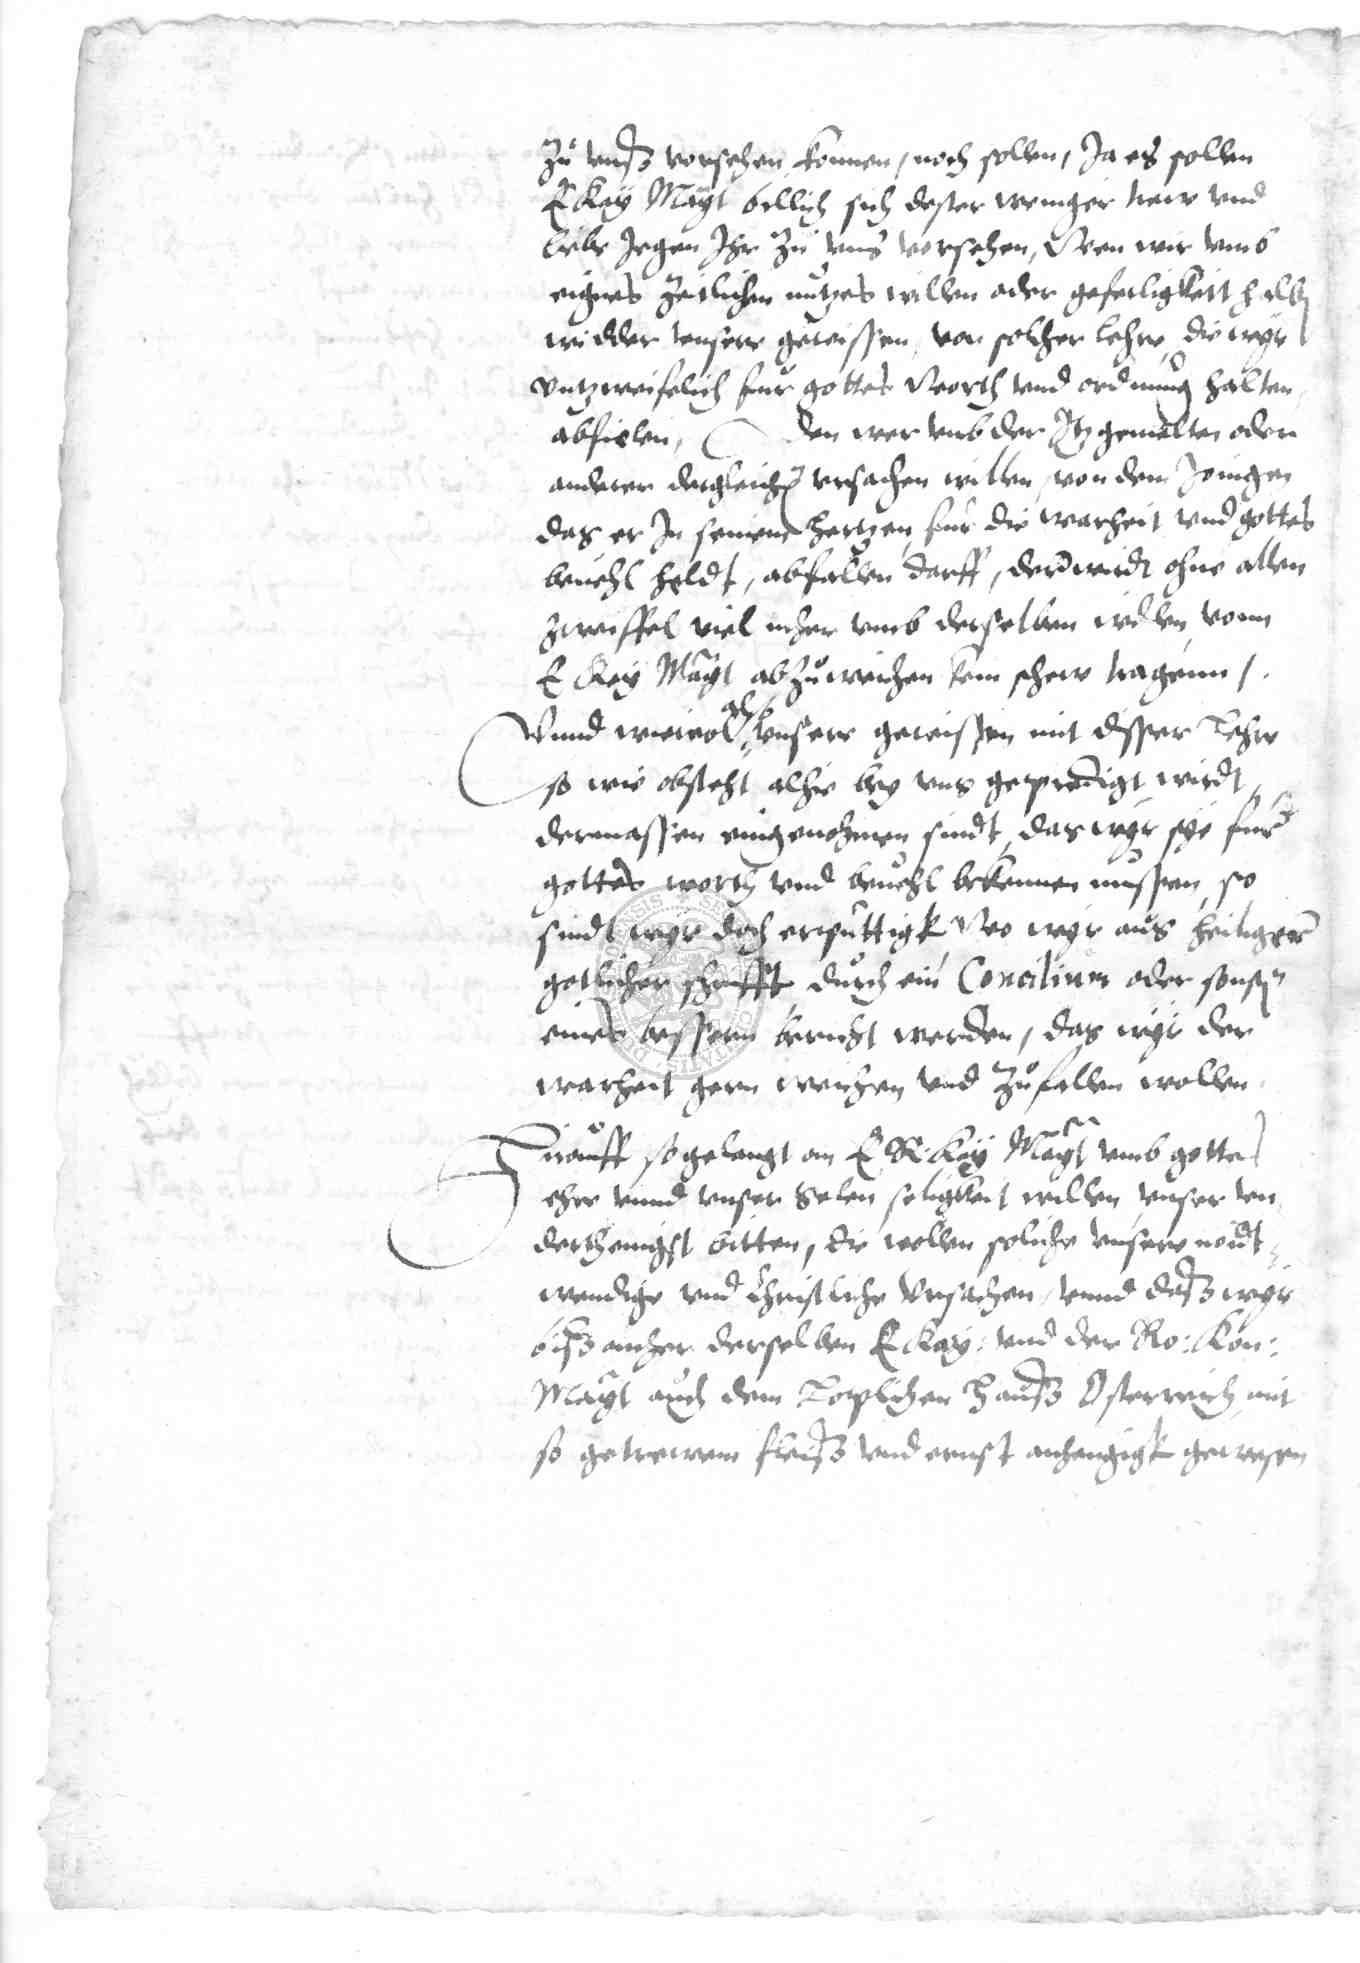 zu vnß vorsehen konnen, noch sollen, Ja es sollen
E Kay Mayt billich sich dester weniger trew vnd
liebe Jegen Ihr zu vns vorsehen, Wen wir vmb
eignes zeitlichen nutzes willen oder geferligkeit halb
widder vnsere gewissen, von solcher lehre, die wyr
vntzweifelich fur gottes Worth vnd ordnung halten,
abfielen, den wer vmb der Itzgemelten oder
anderer dergleich vrsachen willen, von dem Jenigen
das er In seinem hertzen fur die warheit vnd gottes
beuehl heldt, abfallen darff, der wirdt ohne allen
zweiffel viel eher vmb derselben willen vonn
E Kay Mayt abzuweichen kein schew tragenn /.
Vnnd wiewol also vnsere gewissen mit disser Lehre
so wie obsteht alhie bey vns gepredigt wirdt,
dermassen eingenohmen sindt, das wyr sye fur
gottes worth vnd beuehl bekennen mussen, so
sindt wyr doch erputtigk Wo wyr aus heiliger
gotlicher schrifft durch ein Concilium oder sonst
eines bessern bericht werden, das wyr der
warheit gern weichen vnd zufallen wollen.
Hirauff so gelangt an E R Kay Mayt vmb gottes
ehre vnnd vnser Selen seligkeit willen vnser vn
derthenigst bitten, die wollen solche vnsere nodt-
wendige vnd christliche Vrsachen, vnnd daß wyr
biß anher derselben E Kay: vnd der Ro: Kon:
Mayt auch dem Loplichen Hauß Osterreich mit
so getrewem fleiß vnd ernst anhengigk gewesen